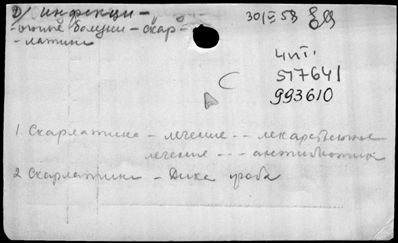 D/ инфекци-
-онные болезни - скар-
- латина
30/III 58
Чит.
517641
993610
C
1. Скарлатина - лечение - - лекарственное
лечение - - - антибиотики
2 Скарлатина - Дика проба